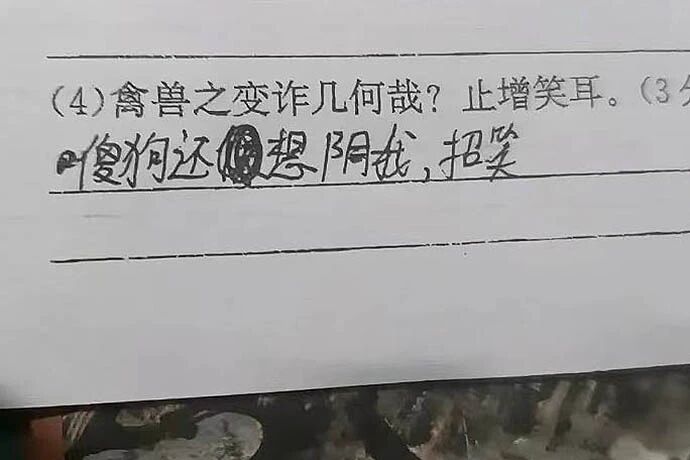 (4)禽兽之变诈几何哉？止增笑耳。(3分
傻狗还想阴我，招笑